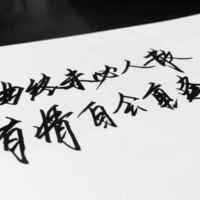 曲终未必人散
有情自会重逢